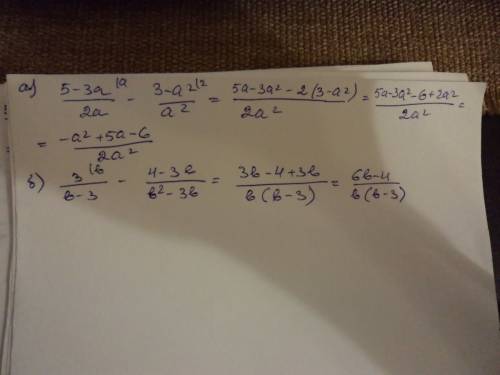 а) (5-3a)/(2a) |a - (3-a²)/(a²) |2 = (5a-3a²-2(3-a²))/(2a²) = (5a-3a²-6+2a²)/(2a²) =
= (-a²+5a-6)/(2a²)
б) 3/(b-3) |b - (4-3b)/(b²-3b) = (3b-4+3b)/(b(b-3)) = (6b-4)/(b(b-3))